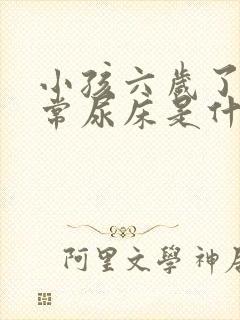 小孩六歲了
常尿床是什
阿里文學 神居